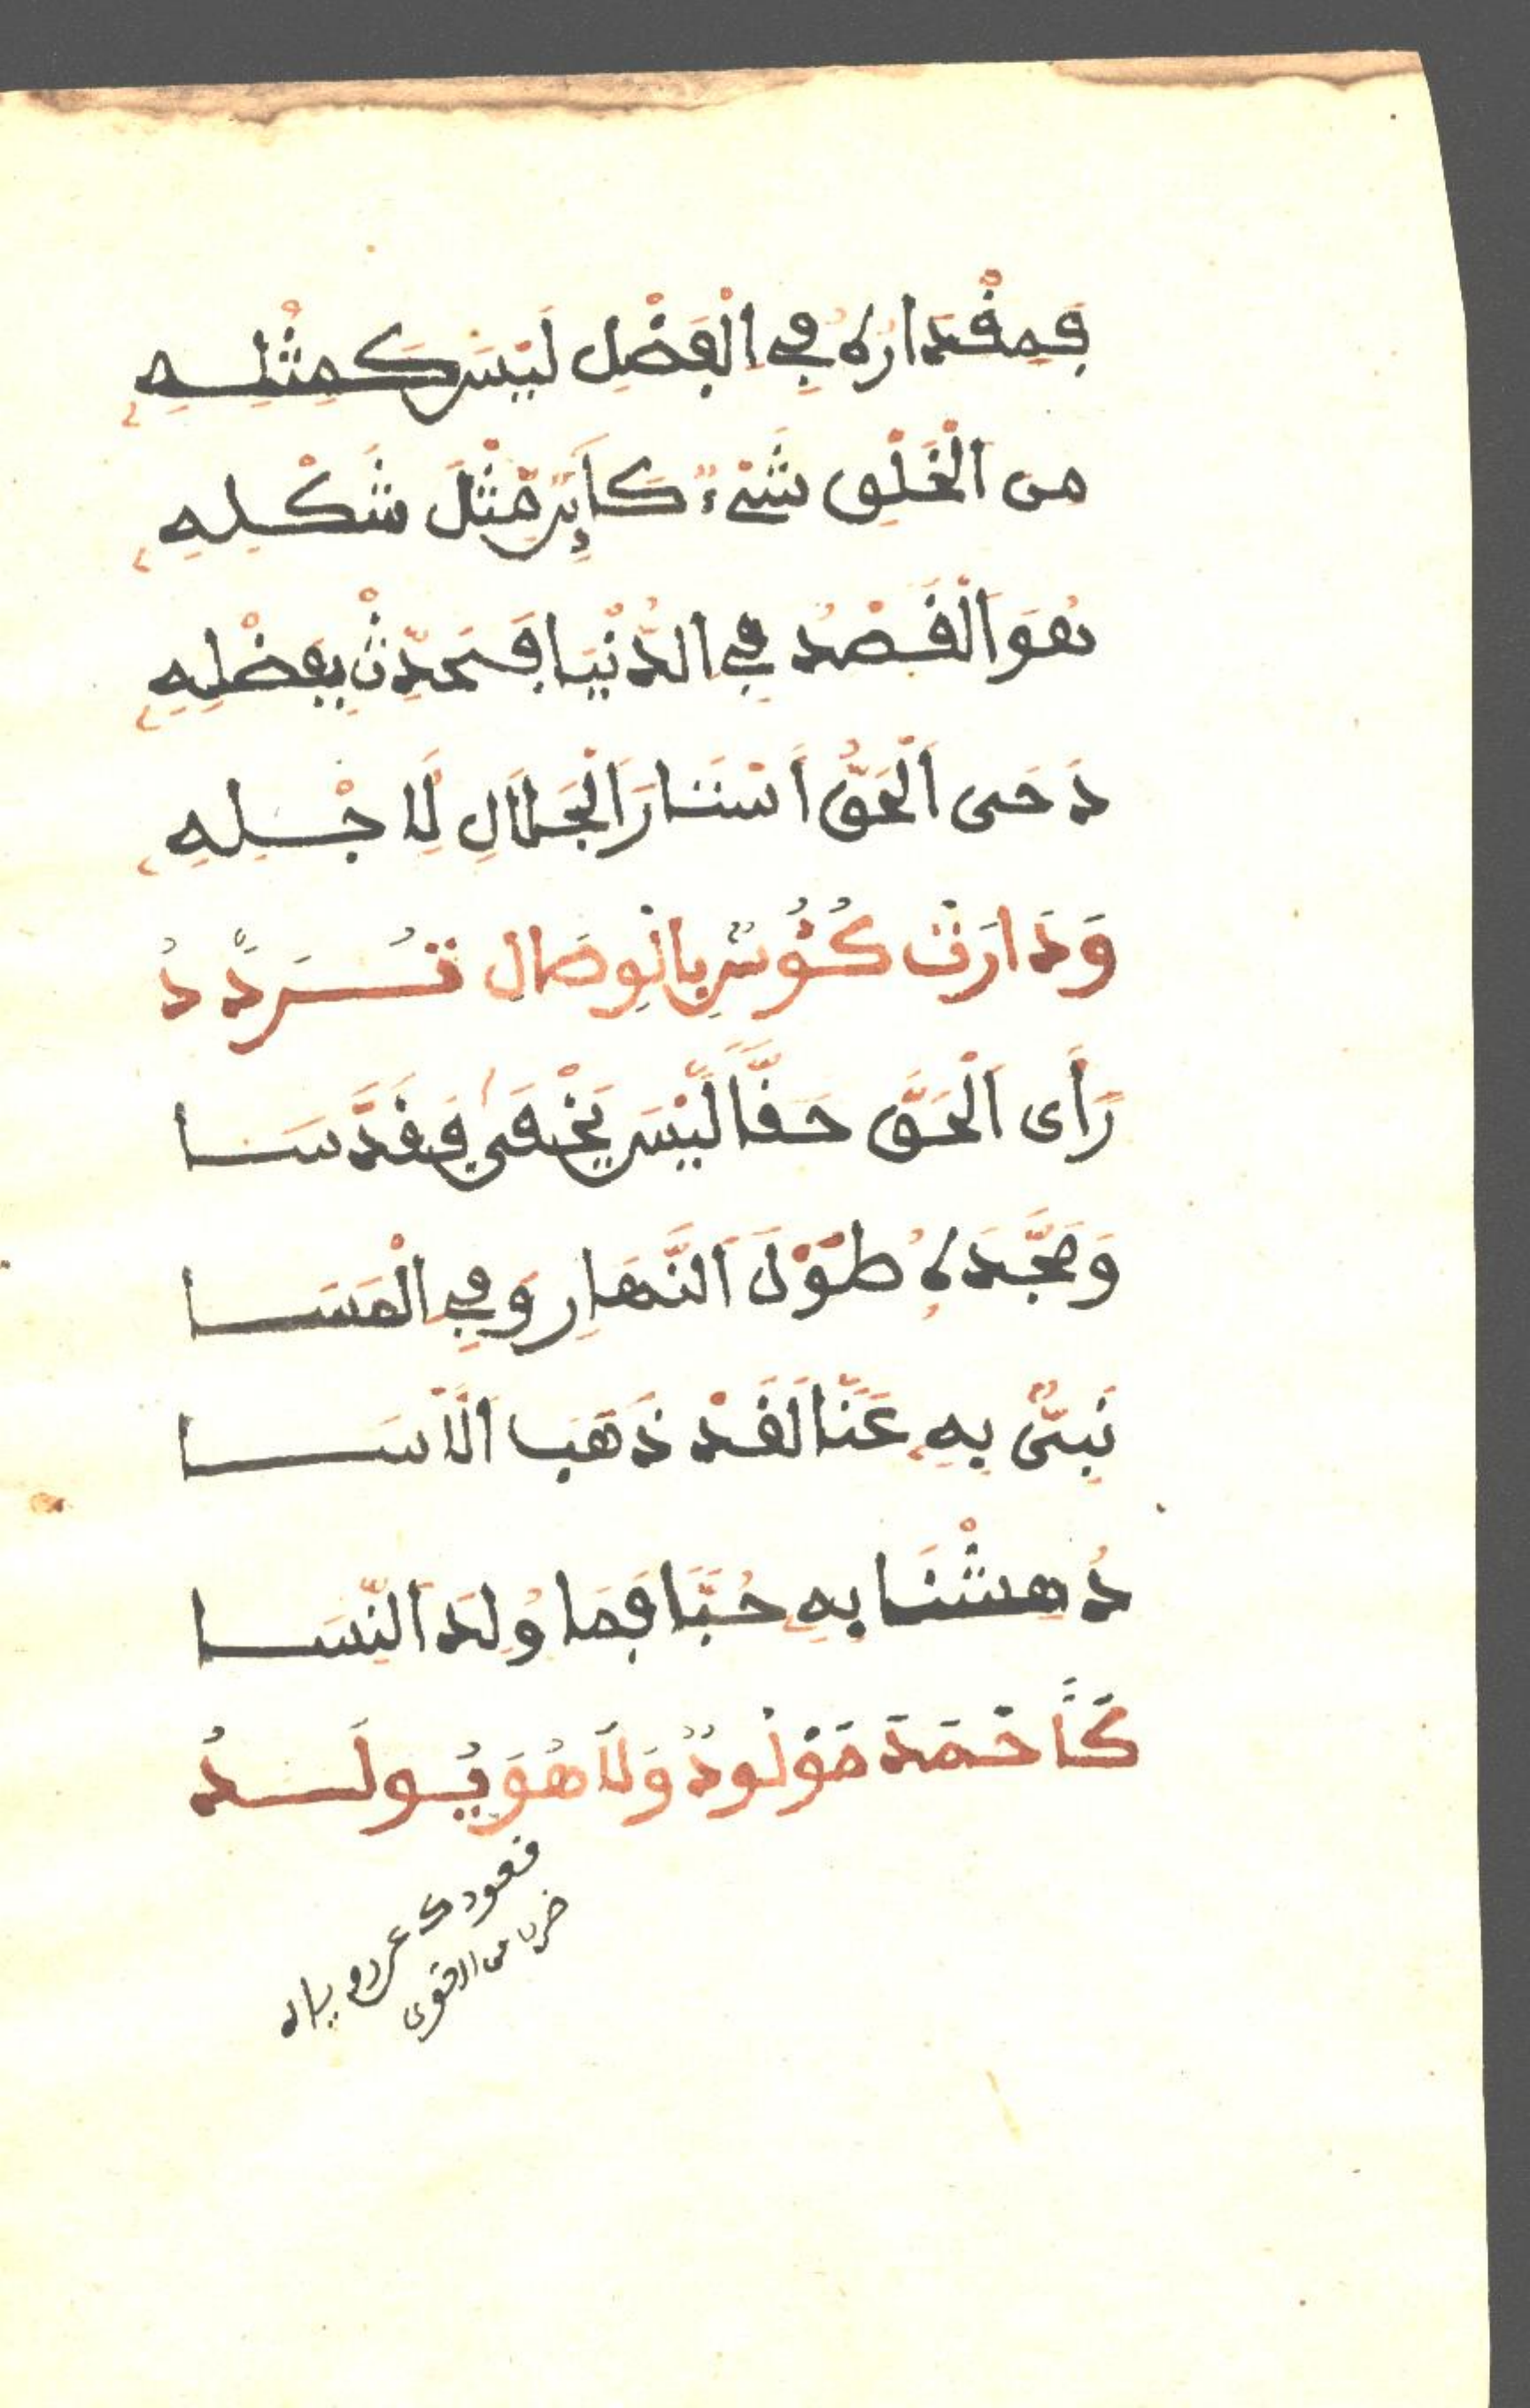 فَمِقْدَارُهُ فِي الْفَضْلِ لَيْسَ كَمِثْلِهِ
مِنَ الْخَلْقِ شَيْءٌ كَايِنٌ مِثْلَ شَكْلِهِ
هُوَ الْقَصْدُ فِي الدُّنْيَا فَحَدِّثْ بِفَضْلِهِ
دَحَى الْحَقُّ اَسْتَارَ الْجَلَالِ لِأَجْلِهِ
وَدَارَتْ كُئُوسٌ بِالْوِصَالِ تُرَدَّدُ
رَأَى الْحَقَّ حَقًّا لَيْسَ يَخْفَى فَقَدَّسَا
وَمَجَّدَهُ طُوْلَ النَّهَارِ وَفِي الْمَسَا
نَبِيٌّ بِهِ عَنَّا لَقَدْ ذَهَبَ الْأَسَا
دُهِشْنَا بِهِ حُبًّا فَمَا وُلِدَ النِّسَا
كَأَحْمَدَ مَوْلُودٌ وَلَا هُوَ يُولَدُ